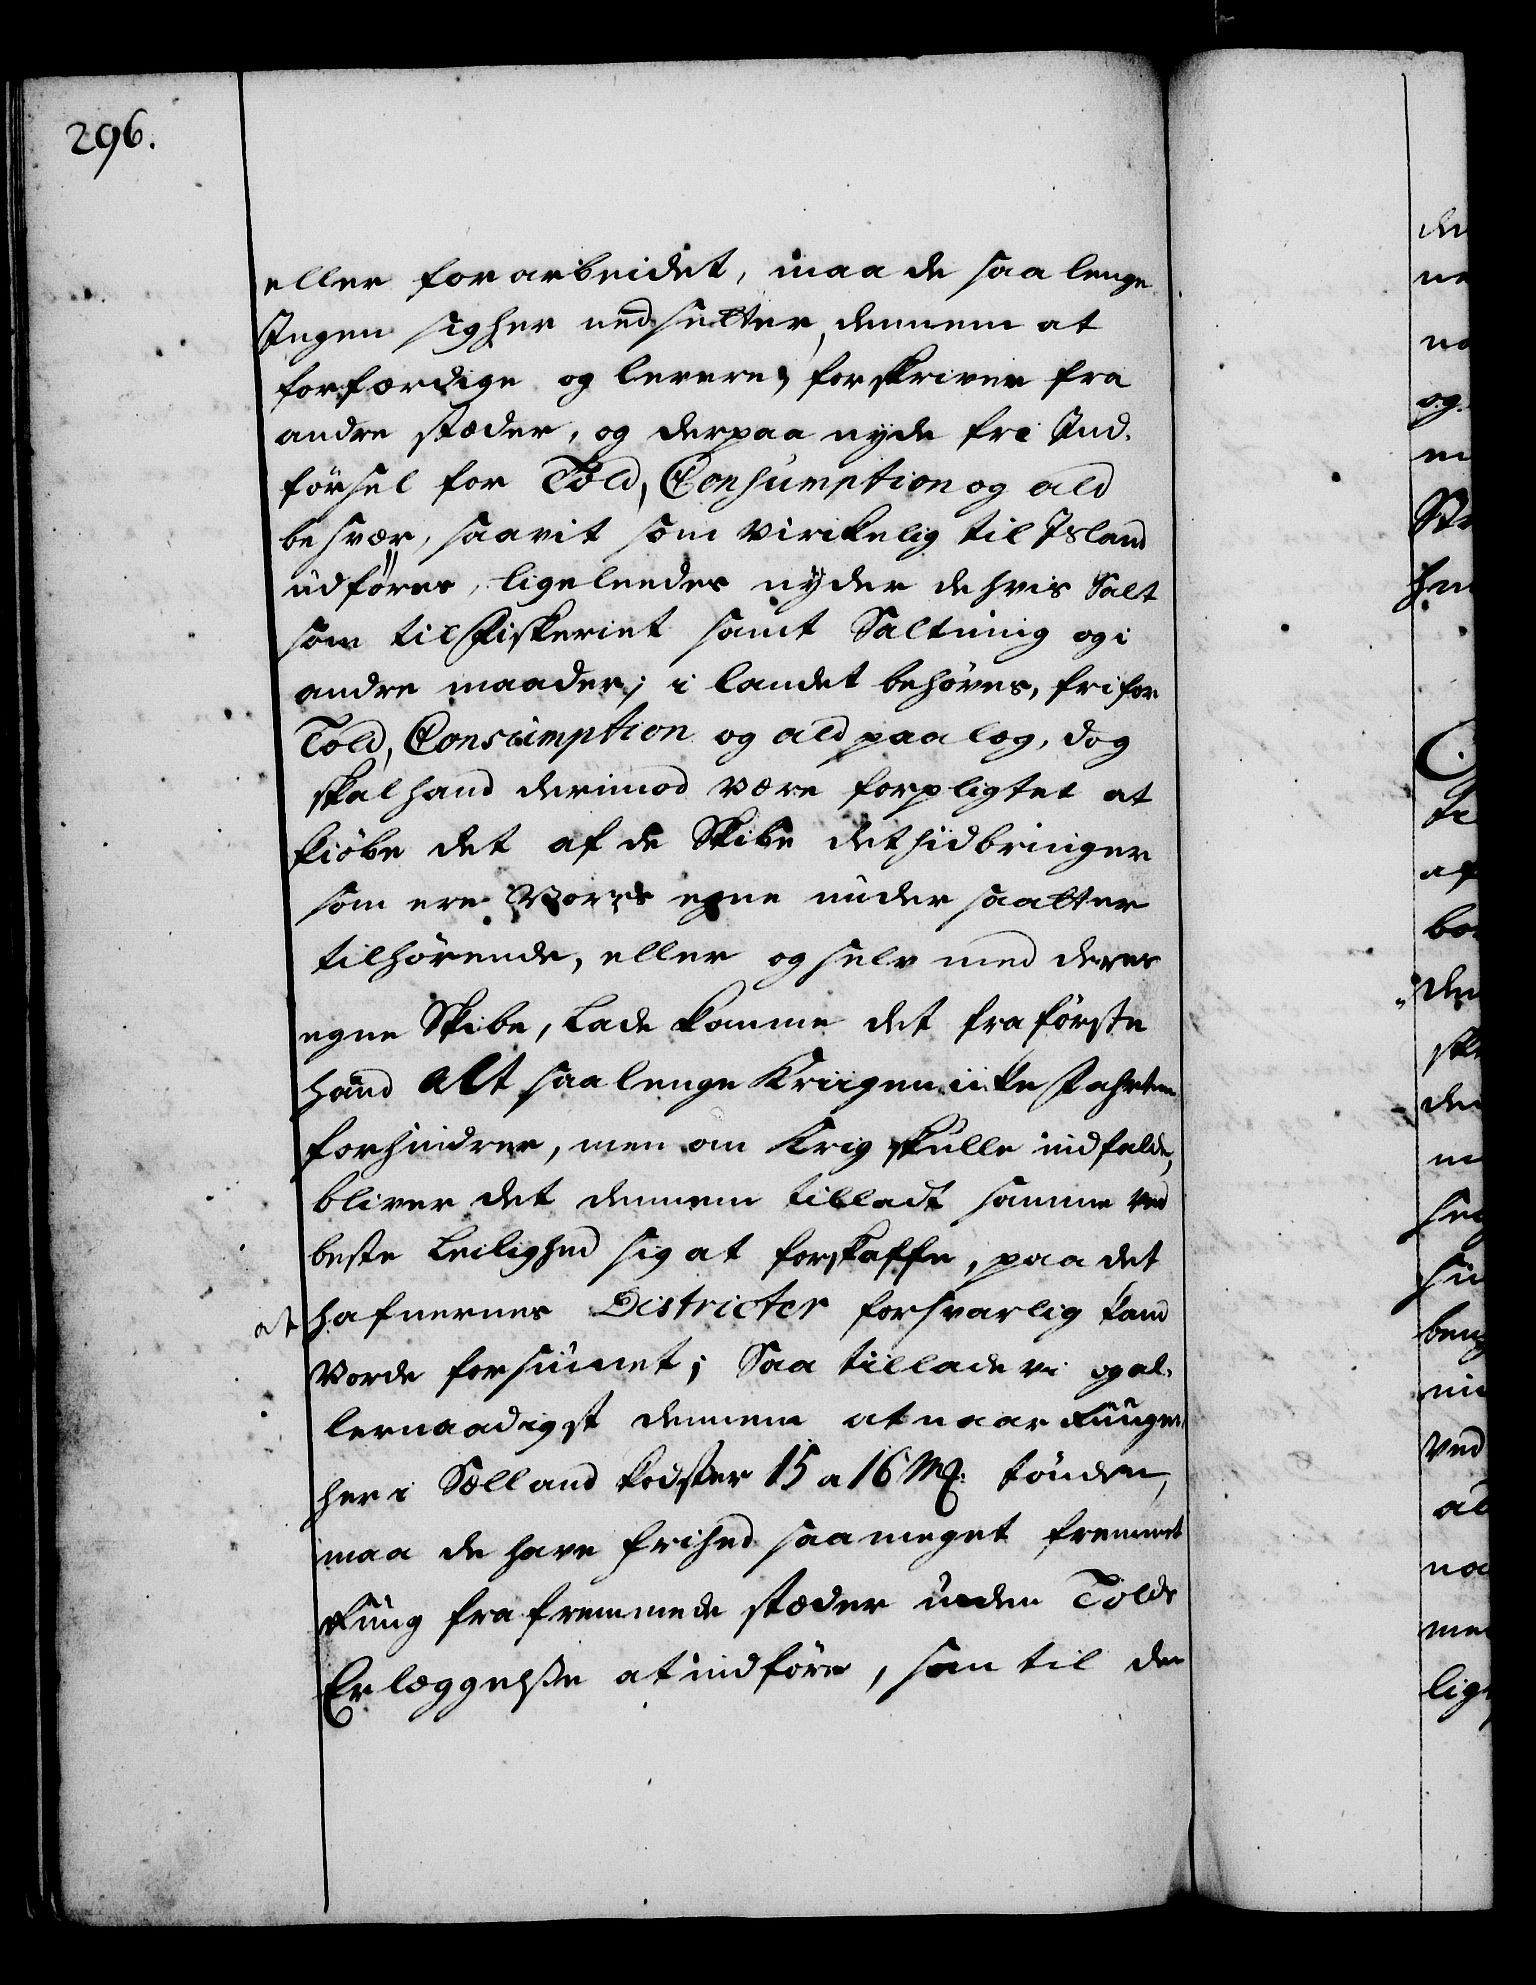 296.
eller forarbeidet, maa de saa lenge
Ingen sig her nedsetter, dennem at
forfærdige og levere, forskriver fra
andre stæder, og derpaa nyde fri Ind-
försel for Told, Consumption og ald
besvær, saavit som virkelig til Island
udföres, ligeleedes nyder de hvis Salt
som til Fiskeriet samt Saltning og i
andre maader, i landet behöves, fri for
Told, Consumption og ald paalæg, dog
skal hand derimod være forpligtet at
kiöbe det af de Skibe det hidbringer
som ere Vores egne undersaatter
tilhörende, eller og selv med deres
egne Skibe, lade komme det fra förste
haand alt saa lenge Kriigen iike Fahrten
forhindrer, men om Krig skulle indfalde,
bliver det dennem tilladt samme ved
beste Leilighed sig at forskaffe, paa det
at hafnernes Districter forsvarlig kand
vorde forsiunet; Saa tillade vi og al-
lernaadigst dennem at naar Rugen
her i Sælland koster 15 a 16 Mk: tönden,
maa de have frihed saa meget fremmet
Rug fra fremmede stæder uden Tolds
Erlæggelse at indföre, som til de